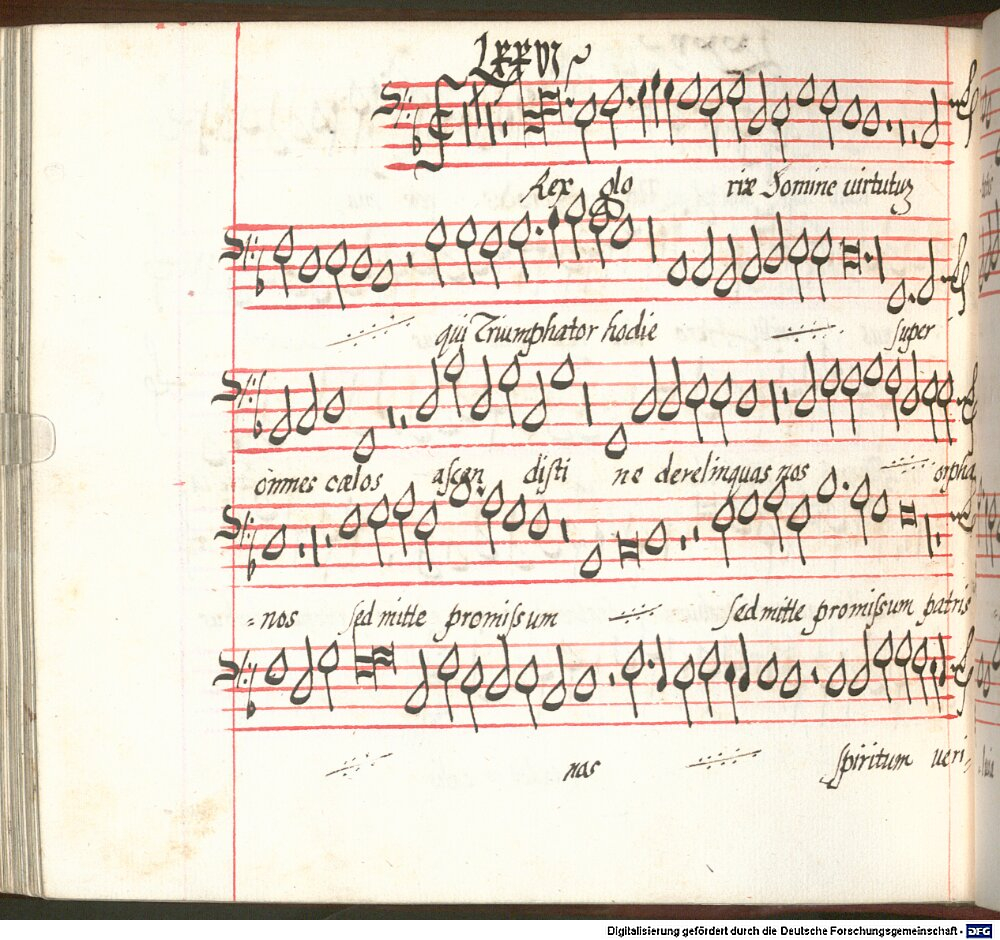 LXXVI
Rex glo riæ Domine uirtutuʒ
qui Triumphator hodie super
omnes cœlos ascen disti ne derelinquas nos orpha
=nos sed mitte promissum sed mitte promissum patris
nas spiritum ueri
Digitalisierung gefördert durch die Deutsche Forschungsgemeinschaft - DFG